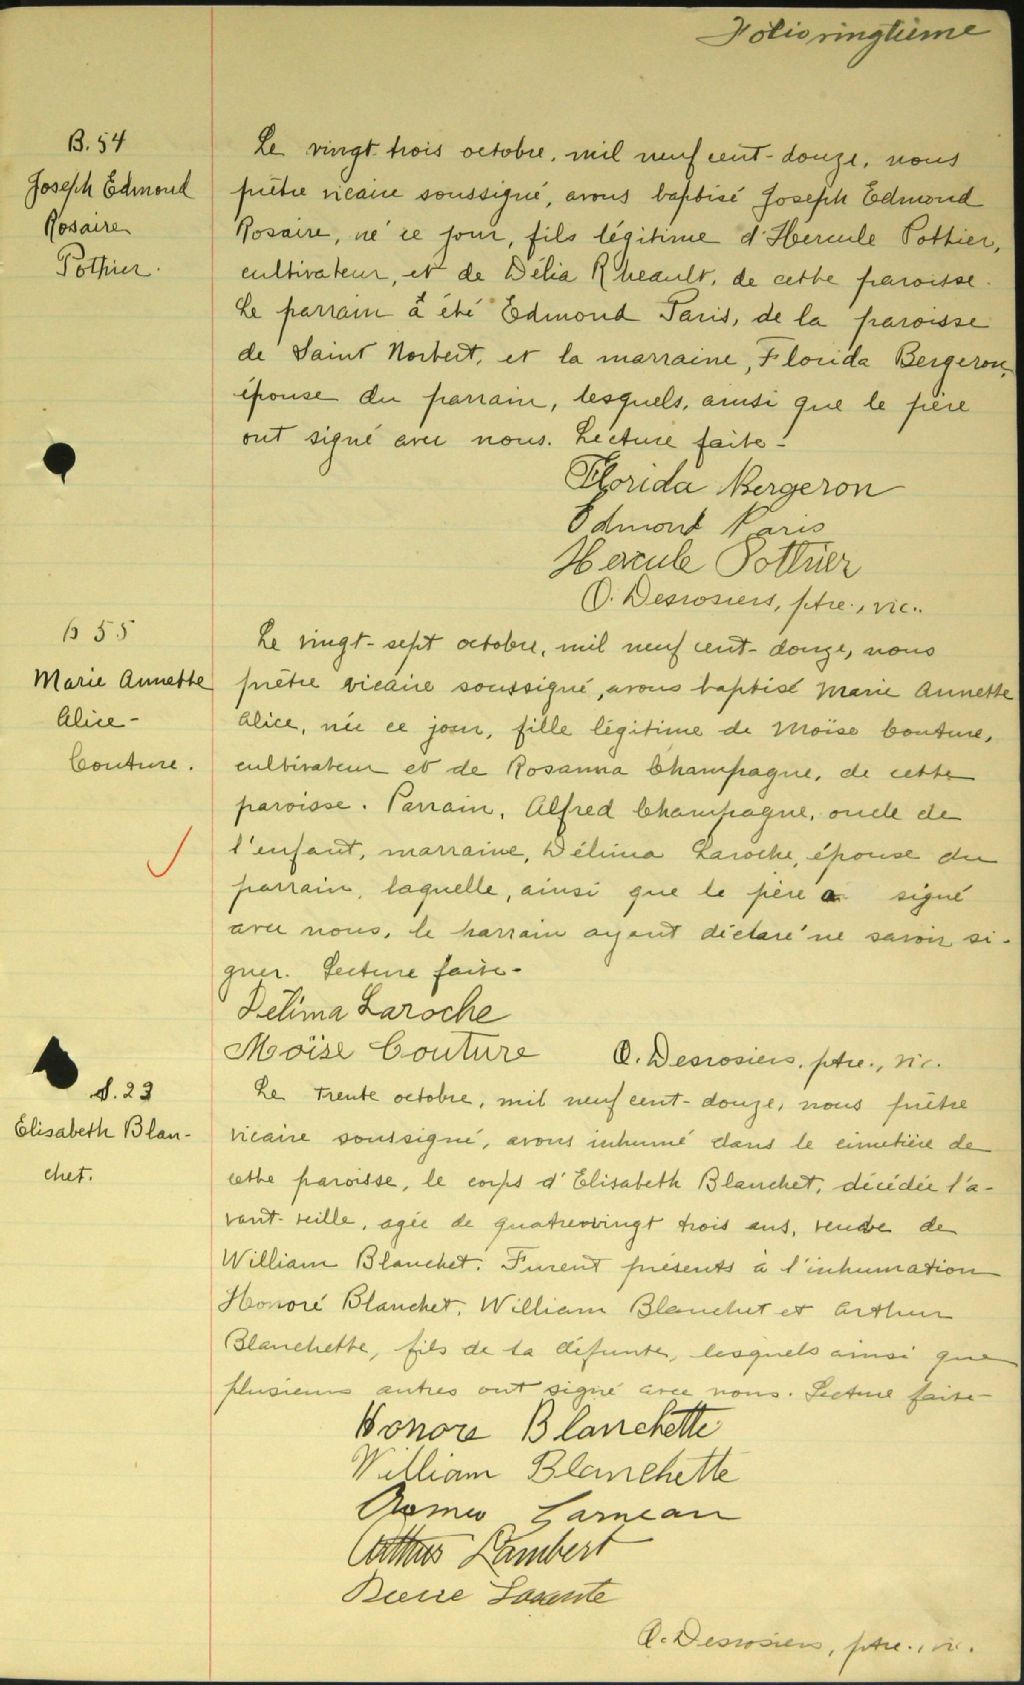 Folio vingtième
B. 54
Joseph Edmond
Rosaire
Pothier.
Le vingt-trois octobre, mil neuf cent-douze, nous
prêtre vicaire soussigné, avons baptisé Joseph Edmond
Rosaire, né ce jour, fils légitime d'Hercule Pothier,
cultivateur, et de Délia Rheault, de cette paroisse.
Le parrain a été Edmond Paris, de la paroisse
de Saint Norbert, et la marraine, Florida Bergeron,
épouse du parrain, lesquels, ainsi que le père
ont signé avec nous. Lecture faite-
Florida Bergeron
Edmond Paris
Hercule Pothier
O. Desrosiers, ptre., vic..
B 55
Marie Annette
Alice-
Couture.
Le vingt-sept octobre, mil neuf cent-douze, nous
prêtre vicaire soussigné, avons baptisé Marie Annette
Alice, née ce jour, fille légitime de Moïse Couture,
cultivateur et de Rosanna Champagne, de cette
paroisse. Parrain, Alfred Champagne, oncle de
l'enfant, marraine, Délima Laroche, épouse du
parrain, laquelle, ainsi que le père a signé
avec nous, le parrain ayant déclaré ne savoir si-
gner. Lecture faite-
Délima Laroche
Moïse Couture
O. Desrosiers, ptre., vic.
S. 23
Elisabeth Blan-
chet.
Le trente octobre, mil neuf cent-douze, nous prêtre
vicaire soussigné, avons inhumé dans le cimetière de
cette paroisse, le corps d'Elisabeth Blanchet, décédée l'a-
vant-veille, agée de quatre vingt trois ans, veuve de
William Blanchet. Furent présents à l'inhumation
Honoré Blanchet, William Blanchet et Arthur
Blanchette, fils de la défunte, lesquels ainsi que
plusieurs autres ont signé avec nous. Lecture faite-
Honore Blanchette
William Blanchette
Romeo Garneau
Arthur Lambert
Pierre
O. Desrosiers, ptre., vic.